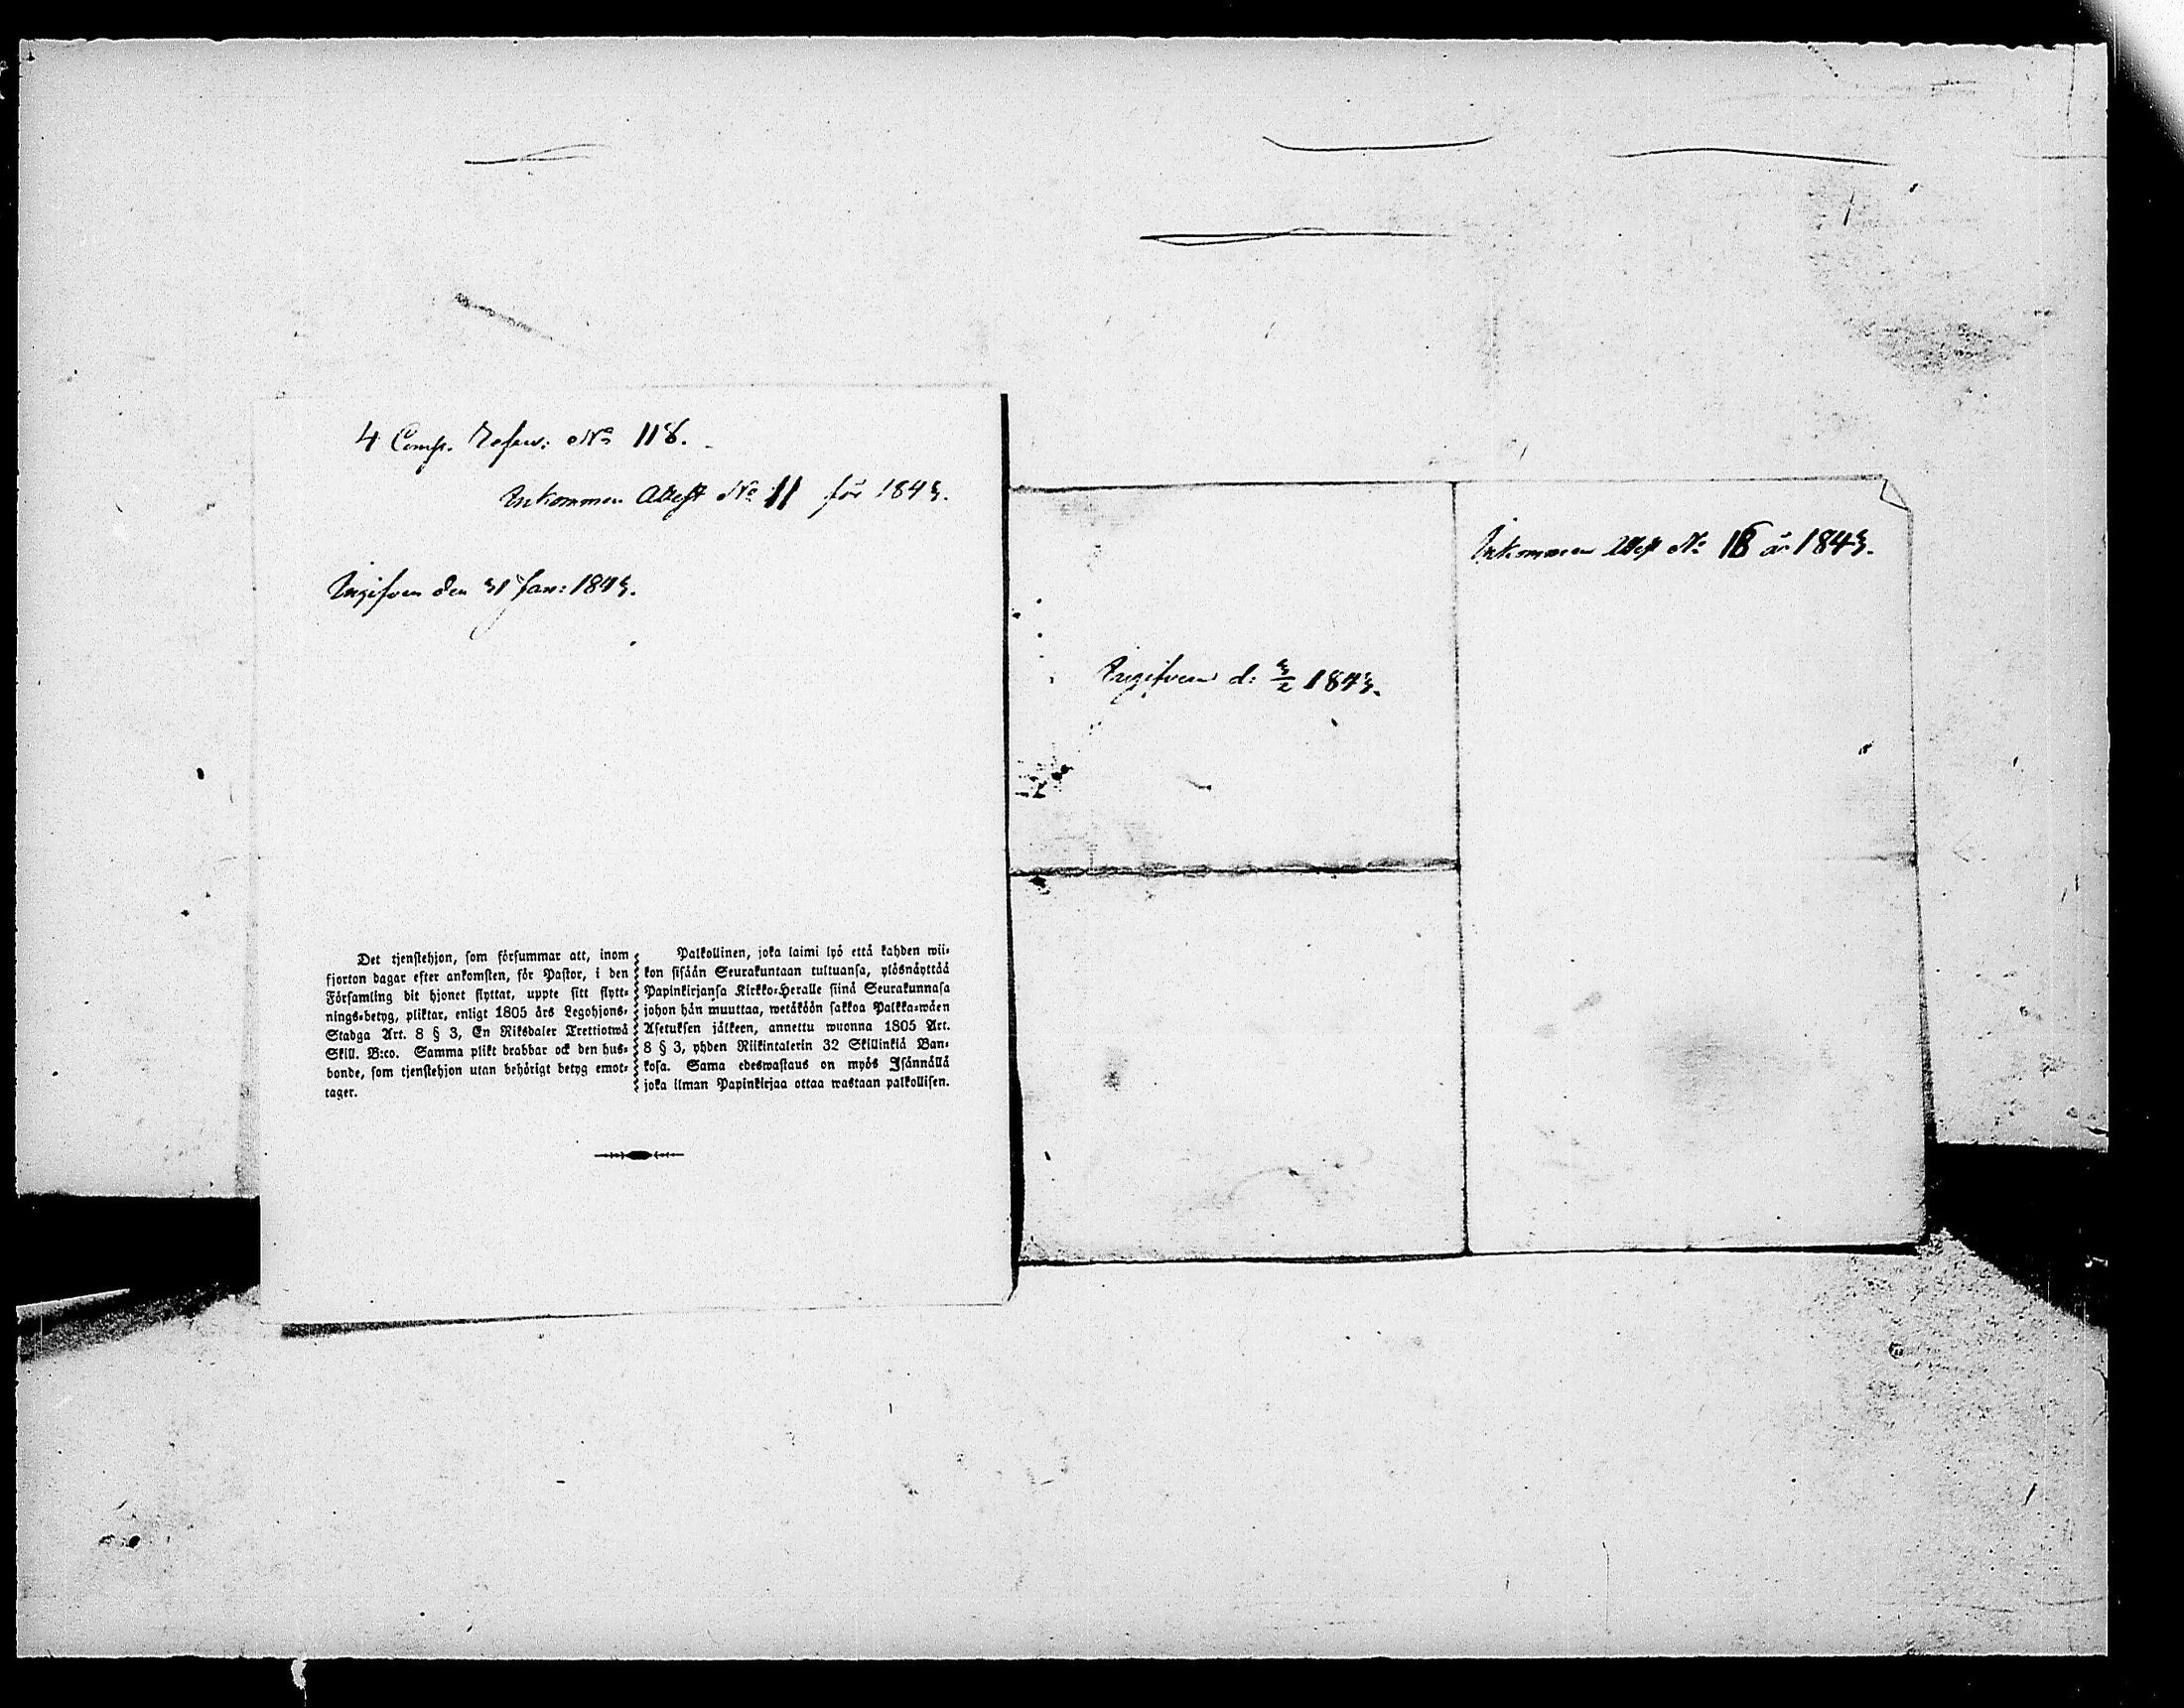 4 Comp. Reserv: No 118.
Inkommen Attest No 11 för 1843.
Ingifven den 31 Jan: 1843.
Det tjenstehjon, som försummar att, inom
fjorton dagar efter ankomsten, för Pastor, i den
Församling dit hjonet flyttat, uppte sitt flytt-
nings-betyg, pliktar, enligt 1805 års Legohjons-
Stadga Art. 8 § 3, En Riksdaler Trettiotwå
Skill. B:co. Samma plikt drabbar ock den hus-
bonde, som tjenstehjon utan behörigt betyg emot-
tager.
Palkollinen, joka laimi lyö että kahden wii-
kon sisään Seurakuntaan tultuansa, ylösnäyttää
Papinkirjansa Kirkko-Heralle siinä Seurakunnasa
johon hän muuttaa, wetäköön sakkoa Palkka-wäen
Asetuksen jälkeen, annettu wuonna 1805 Art.
8 § 3, yhden Riikintalerin 32 Skillinkiä Ban-
kosa. Sama edeswastaus on myös Isännällä
joka ilman Papinkirjaa ottaa wastaan palkollisen.
Ingifven d: 3/2 1843.
Inkommen Attest No 18 år 1843.